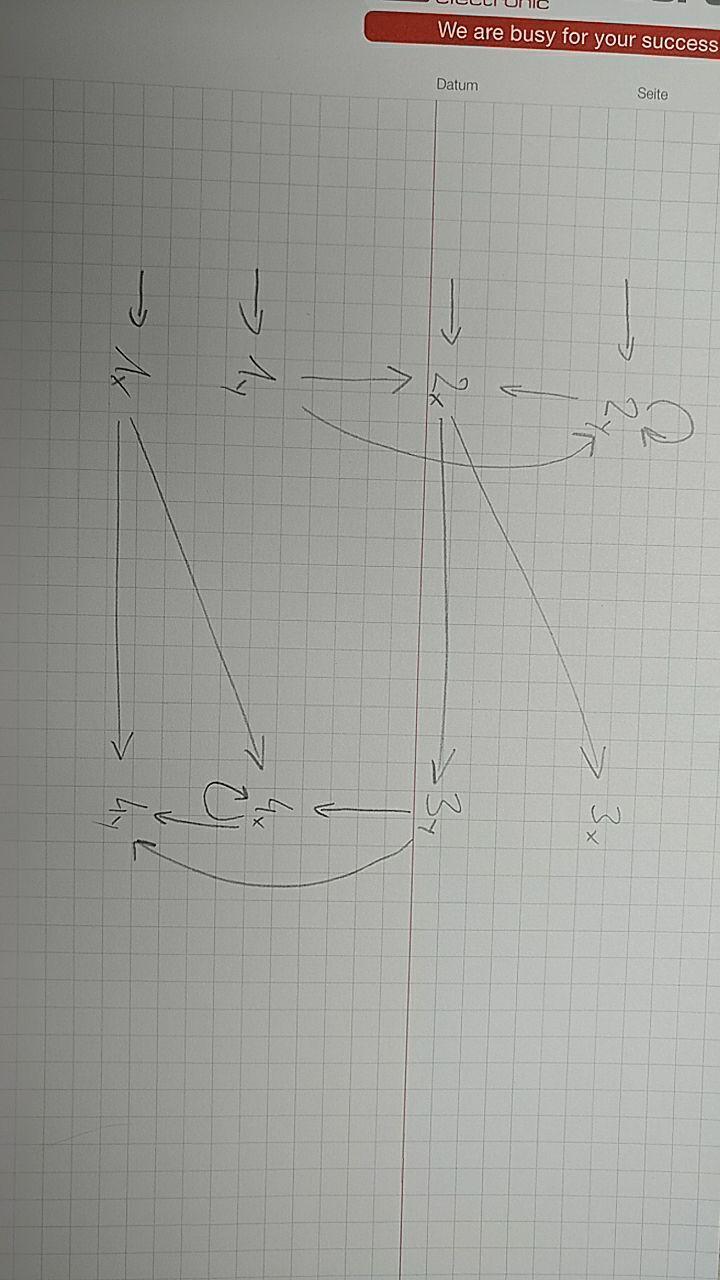 electronic
We are busy for your success
Datum Seite
2y 3x
2x 3y
1y 4x
1x 4y